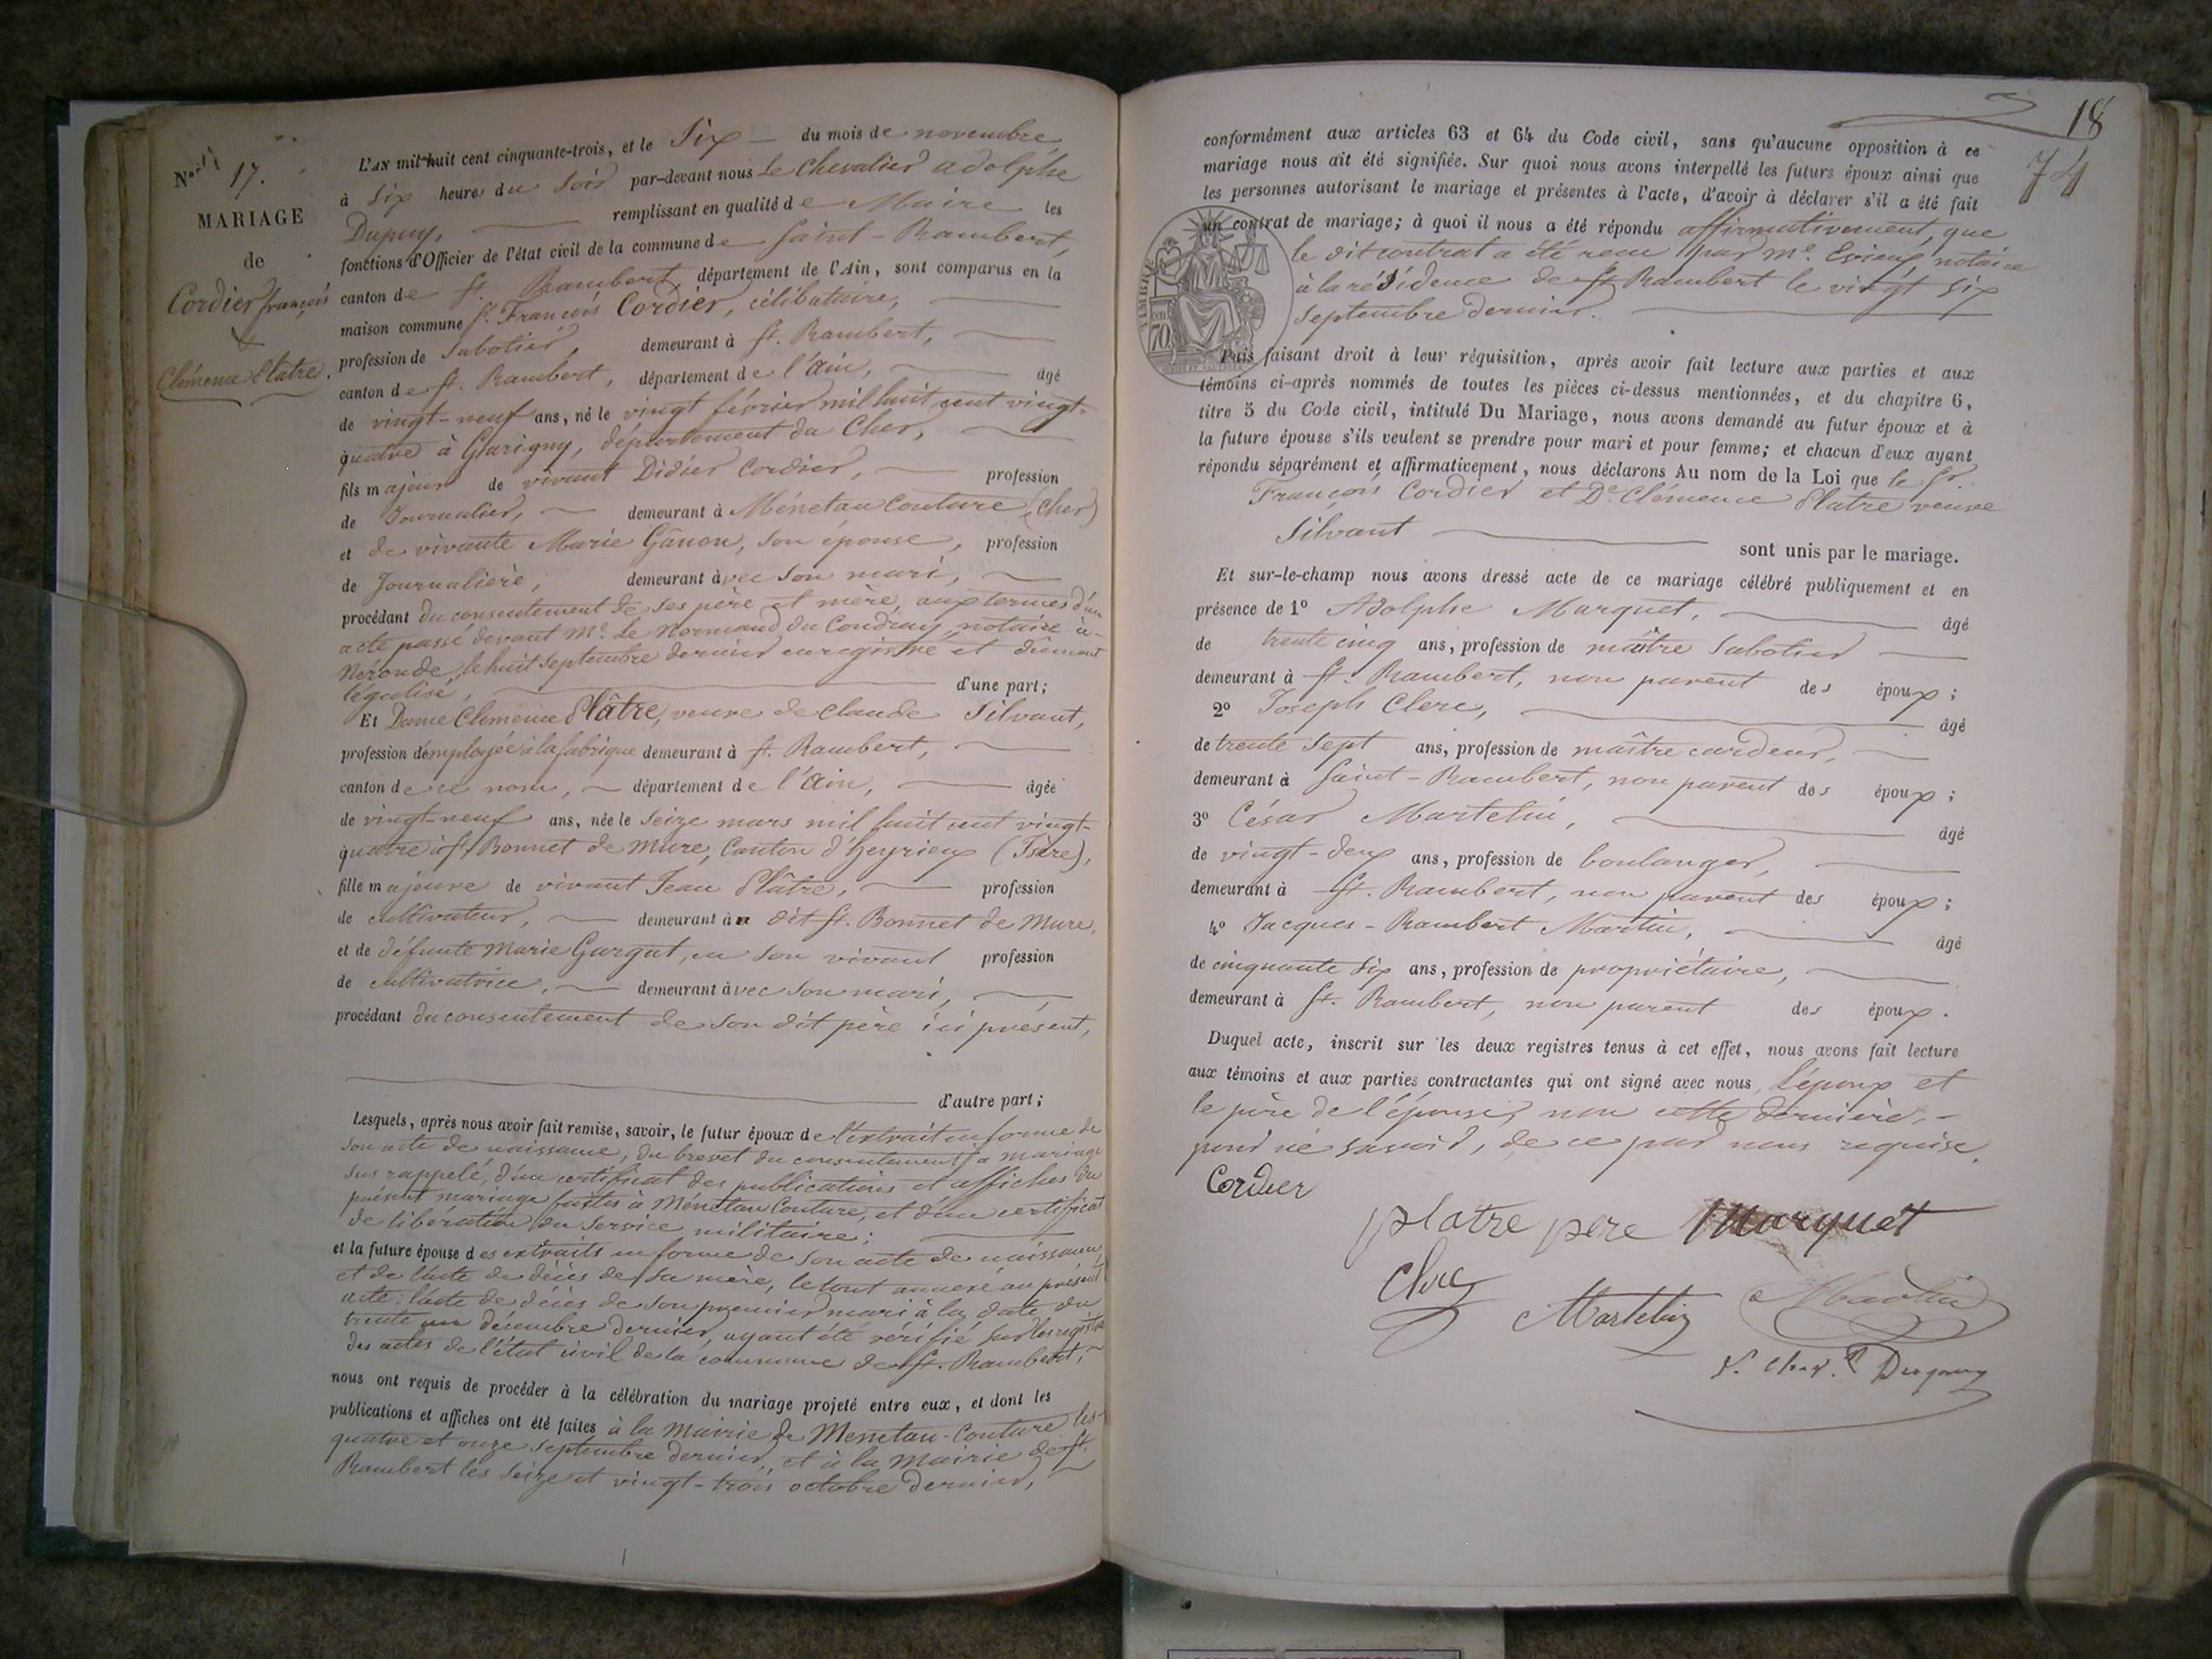 N° 17.
MARIAGE
de
Cordier françois
&
Clémence Platre.
L'AN mil huit cent cinquante-trois, et le Six du mois de novembre,
à Six heures du Soir par-devant nous Le Chevalier adolphe
Dupuy, remplissant en qualité de Maire les
fonctions d'Officier de l'état civil de la commune de Saint-Rambert,
canton de St. Rambert, département de l'Ain, sont comparus en la
maison commune Sr. François Cordier, célibataire,
profession de Sabotier, demeurant à St. Rambert,
canton de St. Rambert, département de l'ain, âgé
de vingt-neuf ans, né le vingt février mil huit cent vingt-
quatre à Garigny, département du Cher,
fils majeur de vivant Didier Cordier, profession
de Journalier, demeurant à Ménetau Couture (Cher)
et de vivante Marie Gânon, son épouse, profession
de Journalière, demeurant avec son mari,
procédant du consentement de ses père et mère, aux termes d'un
acte passé devant Me. Le Normand du Coudray, notaire à
Néronde, le huit Septembre dernier enregistré et dûment
légalisé, d'une part;
Et Dame Clémence Plâtre, veuve de Claude Silvant,
profession d'employée à la fabrique demeurant à St. Rambert,
canton de ce nom, département de l'ain, âgée
de vingt-neuf ans, née le Seize mars mil huit cent vingt-
quatre à St. Bonnet de Mure, Canton d'heyrieux (Isère),
fille majeure de vivant Jean Plâtre, profession
de cultivateur, demeurant à dit St. Bonnet de Mure,
et de défunte Marie Gargat, en son vivant profession
de cultivatrice, demeurant avec son mari,
procédant du consentement de son dit père ici présent,
d'autre part;
Lesquels, après nous avoir fait remise, savoir, le futur époux de l'extrait en forme de
son acte de naissance, du brevet du consentement à mariage
sus rappelé, d'un certificat des publications et affiches du
présent mariage faites à Ménetau Couture, et d'un certificat
de libération du service militaire;
et la future épouse des extraits en forme de son acte de naissance,
et de l'acte de décès de sa mère, le tout annexé au présent
acte; l'acte de décès de son premier mari à la date du
trente un décembre dernier, ayant été vérifié sur les registres
des actes de l'état civil de la commune de St. Rambert;
nous ont requis de procéder à la célébration du mariage projeté entre eux, et dont les
publications et affiches ont été faites à la Mairie de Menetau-Couture les
quatre et onze septembre dernier, et à la Mairie de St.
Rambert les Seize et vingt-trois octobre dernier,
18
74
conformément aux articles 63 et 64 du Code civil, sans qu'aucune opposition à ce
mariage nous ait été signifiée. Sur quoi nous avons interpellé les futurs époux ainsi que
les personnes autorisant le mariage et présentes à l'acte, d'avoir à déclarer s'il a été fait
un contrat de mariage; à quoi il nous a été répondu affirmativement, que
le dit contrat a été reçu par Me. notaire
à la résidence de St. Rambert le vingt six
Septembre dernier.
TIMBRE
70
Puis faisant droit à leur réquisition, après avoir fait lecture aux parties et aux
témoins ci-après nommés de toutes les pièces ci-dessus mentionnées, et du chapitre 6,
titre 5 du Code civil, intitulé Du Mariage, nous avons demandé au futur époux et à
la future épouse s'ils veulent se prendre pour mari et pour femme; et chacun d'eux ayant
répondu séparément et affirmativement, nous déclarons Au nom de la Loi que le Sr.
François Cordier et De. Clémence Platre veuve
Silvant sont unis par le mariage.
Et sur-le-champ nous avons dressé acte de ce mariage célébré publiquement et en
présence de 1° Adolphe Marquet, âgé
de trente cinq ans, profession de maître Sabotier
demeurant à St. Rambert, non parent des époux;
2° Joseph Clerc, âgé
de trente Sept ans, profession de maître cardeur,
demeurant à Saint-Rambert, non parent des époux;
3° César Martelin, âgé
de vingt-deux ans, profession de boulanger,
demeurant à St. Rambert, non parent des époux;
4° Jacques-Rambert Martin, âgé
de cinquante six ans, profession de propriétaire,
demeurant à St. Rambert, non parent des époux.
Duquel acte, inscrit sur les deux registres tenus à cet effet, nous avons fait lecture
aux témoins et aux parties contractantes qui ont signé avec nous, l'époux et
le père de l'épouse, non cette dernière,
pour ne savoir, de ce par nous requise.
Cordier
platre pere Marquet
Clerc
Martelin Martin
Dupuy